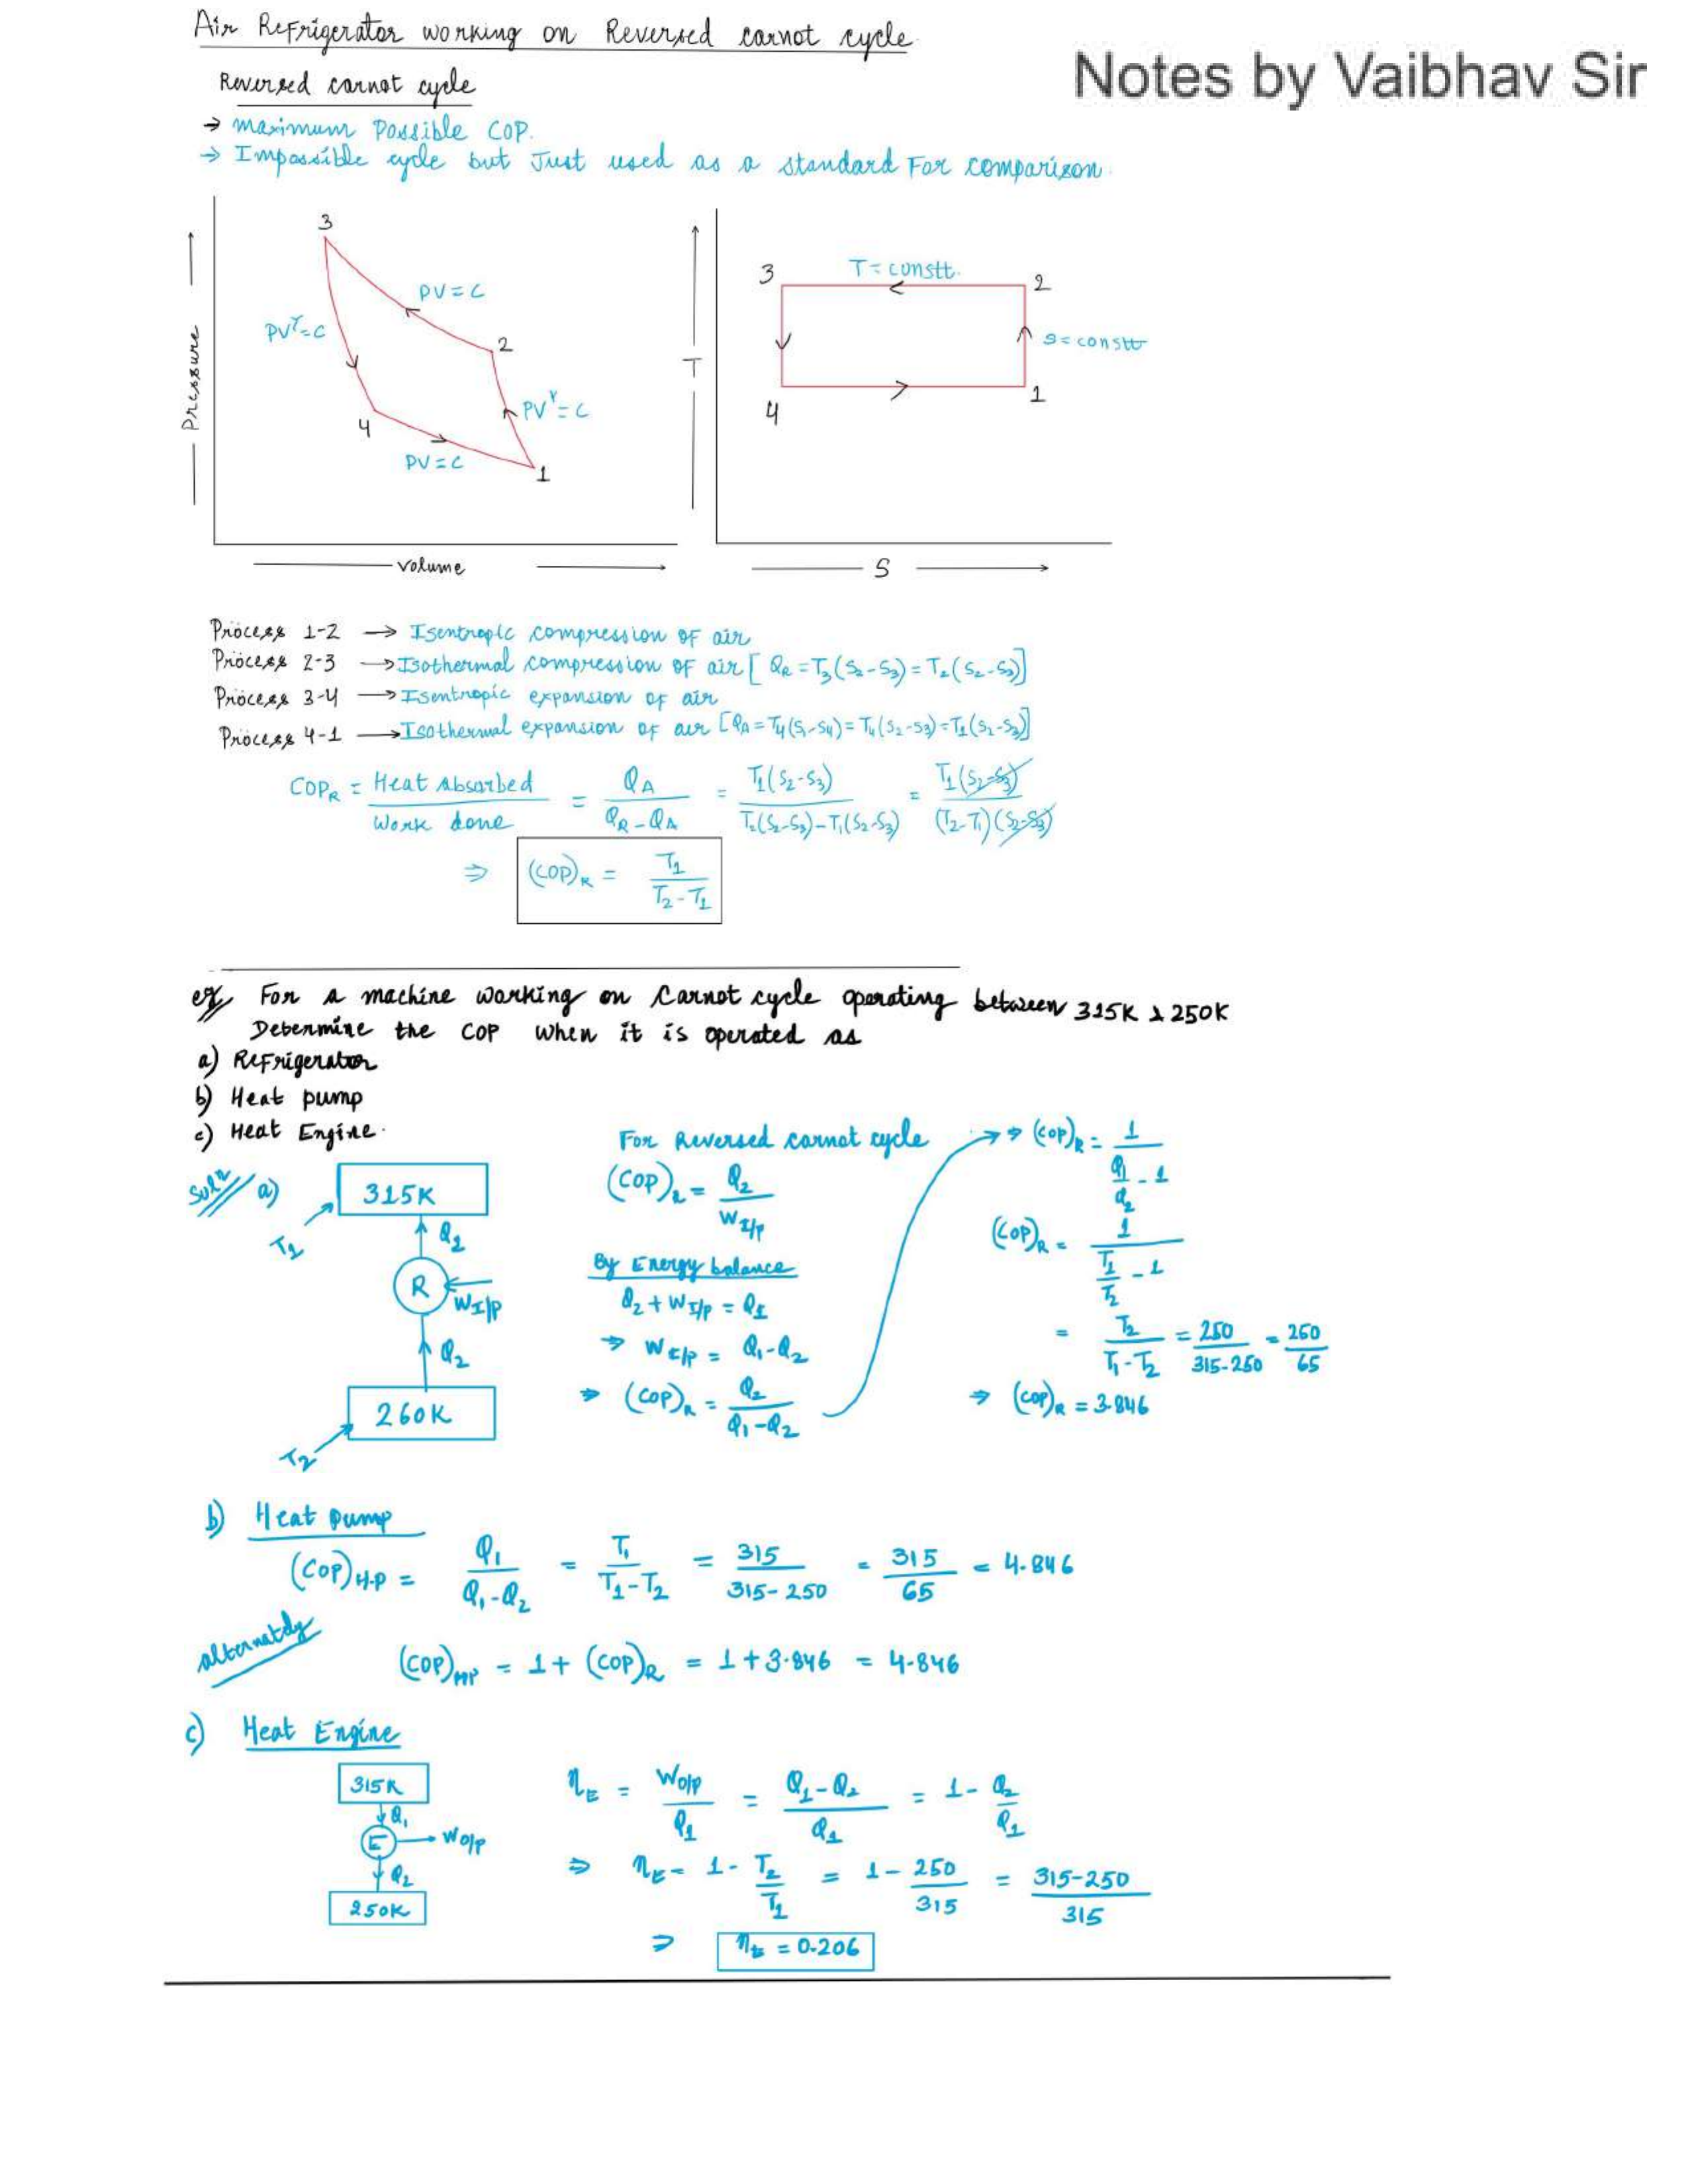 Air Refrigerator working on Reversed carnot cycle
Notes by Vaibhav Sir
Reversed carnot cycle
→ maximum Possible COP.
→ Impossible cycle but Just used as a standard For comparison.
3
PV=C
PVᵞ=C
2
PVᵞ=C
4
PV=C
1
Pressure
volume
3
T=constt.
2
S=constt
4
1
T
S
Process 1-2 → Isentropic compression of air
Process 2-3 → Isothermal compression of air [ Q_R = T₃(S₂-S₃) = T₂(S₂-S₃)]
Process 3-4 → Isentropic expansion of air
Process 4-1 → Isothermal expansion of air [Q_A = T₄(S₁-S₄) = T₄(S₂-S₃) = T₁(S₂-S₃)]
COP_R = Heat Absorbed / Work done = Q_A / Q_R - Q_A = T₁(S₂-S₃) / T₂(S₂-S₃) - T₁(S₂-S₃) = T₁(S₂-S₃) / (T₂-T₁)(S₂-S₃)
⇒ (COP)_R = T₁ / T₂-T₁
eg, For a machine working on Carnot cycle operating between 315K & 250K
Determine the COP when it is operated as
a) Refrigerator
b) Heat pump
c) Heat Engine.
Solⁿ a)
315K
T₁
Q₂
R
W_I/P
Q₂
260K
T₂
For Reversed carnot cycle
(COP)_R = Q₂ / W_I/P
By Energy balance
Q₂ + W_I/P = Q₁
⇒ W_I/P = Q₁-Q₂
⇒ (COP)_R = Q₂ / Q₁-Q₂
⇒ (COP)_R = 1 / Q₁/Q₂ - 1
(COP)_R = 1 / T₁/T₂ - 1
= T₂ / T₁-T₂ = 250 / 315-250 = 250 / 65
⇒ (COP)_R = 3.846
b) Heat pump
(COP)_H.P = Q₁ / Q₁-Q₂ = T₁ / T₁-T₂ = 315 / 315-250 = 315 / 65 = 4.846
alternately
(COP)_HP = 1 + (COP)_R = 1 + 3.846 = 4.846
c) Heat Engine
315K
Q₁
E
W O/P
Q₂
250K
η_E = W O/P / Q₁ = Q₁-Q₂ / Q₁ = 1 - Q₂/Q₁
⇒ η_E = 1 - T₂/T₁ = 1 - 250/315 = 315-250 / 315
⇒ η_E = 0.206